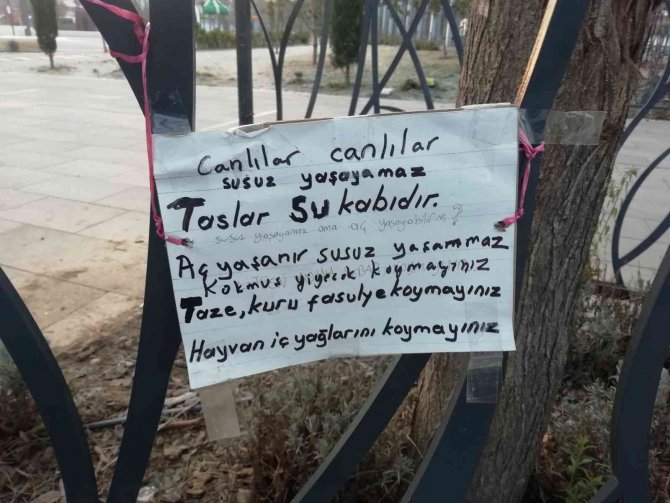 Canlılar canlılar
susuz yaşayamaz
Taslar Su kabıdır.
susuz yaşayamaz ama aç yaşayabilirmi?
Aç yaşanır susuz yaşammaz
Kokmuş yiyecek koymayınız
Taze, kuru fasulye koymayınız
Hayvan iç yağlarını koymayınız